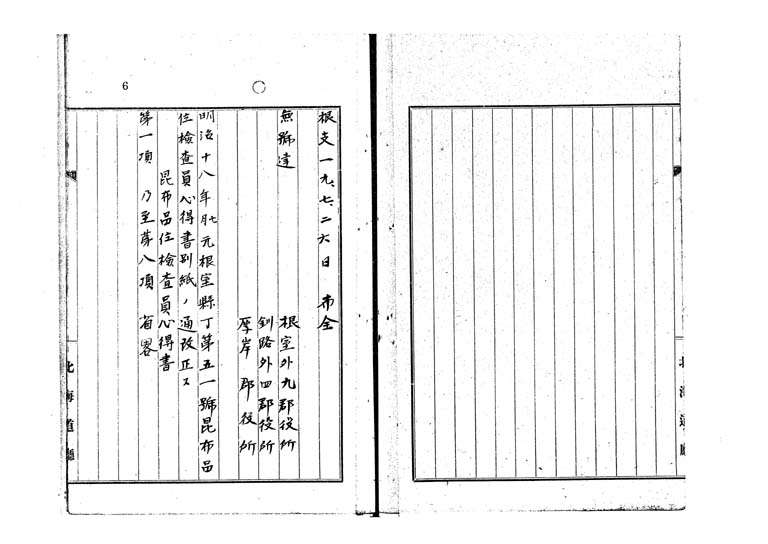 6
根支一九、七、二六日 布全
無號達
根室外九郡役所
釧路外四郡役所
厚岸郡役所
明治十八年七月元根室縣丁第五一號昆布品
位檢查員心得書別紙ノ通改正ス
昆布品位檢查員心得書
第一項乃至第八項 省畧
北海道廳
北海道廳